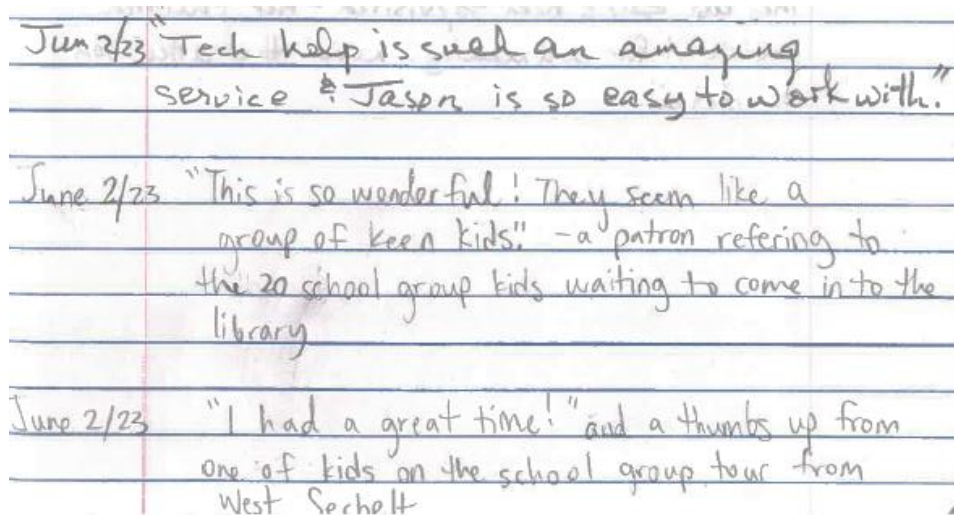 Jun 2/23 "Tech help is such an amazing
service & Jason is so easy to work with."
June 2/23 "This is so wonderful! They seem like a
group of keen kids." -a patron refering to
the 20 school group kids waiting to come in to the
library
June 2/23 "I had a great time!" and a thumbs up from
one of kids on the school group tour from
West Sechelt